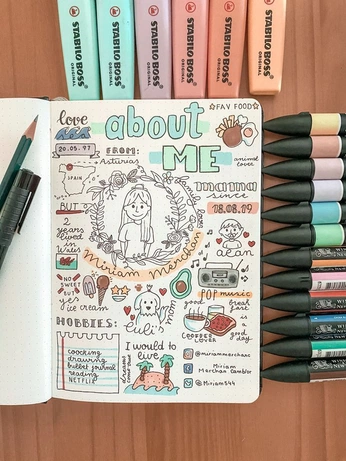 STABILO BOSS ORIGINAL
STABILO BOSS ORIGINAL
STABILO BOSS ORIGINAL
STABILO BOSS ORIGINAL
STABILO BOSS ORIGINAL
STABILO BOSS ORIGINAL
love
about
ME
FAV FOOD
20.05.97
FROM:
Asturias
animal
lover
SPAIN
mama
since
18.08.19
BUT
2
years
lived
in
Wales
Miriam Merchan
alan
NO
SWEET
BUT
yes
ice cream
luli's
mom
POP music
good
break
fast
is a
good
day
COOFFEE
LOVER
HOBBIES:
coocking
drawing
bullet journal
reading
NETFLIX
I would to
live
@miriammerchanc
Miriam
Merchan
@Miriam544